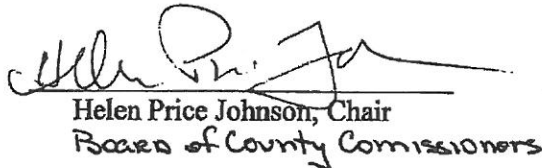 Helen Pri. Jo
Helen Price Johnson, Chair
Board of County Comissioners